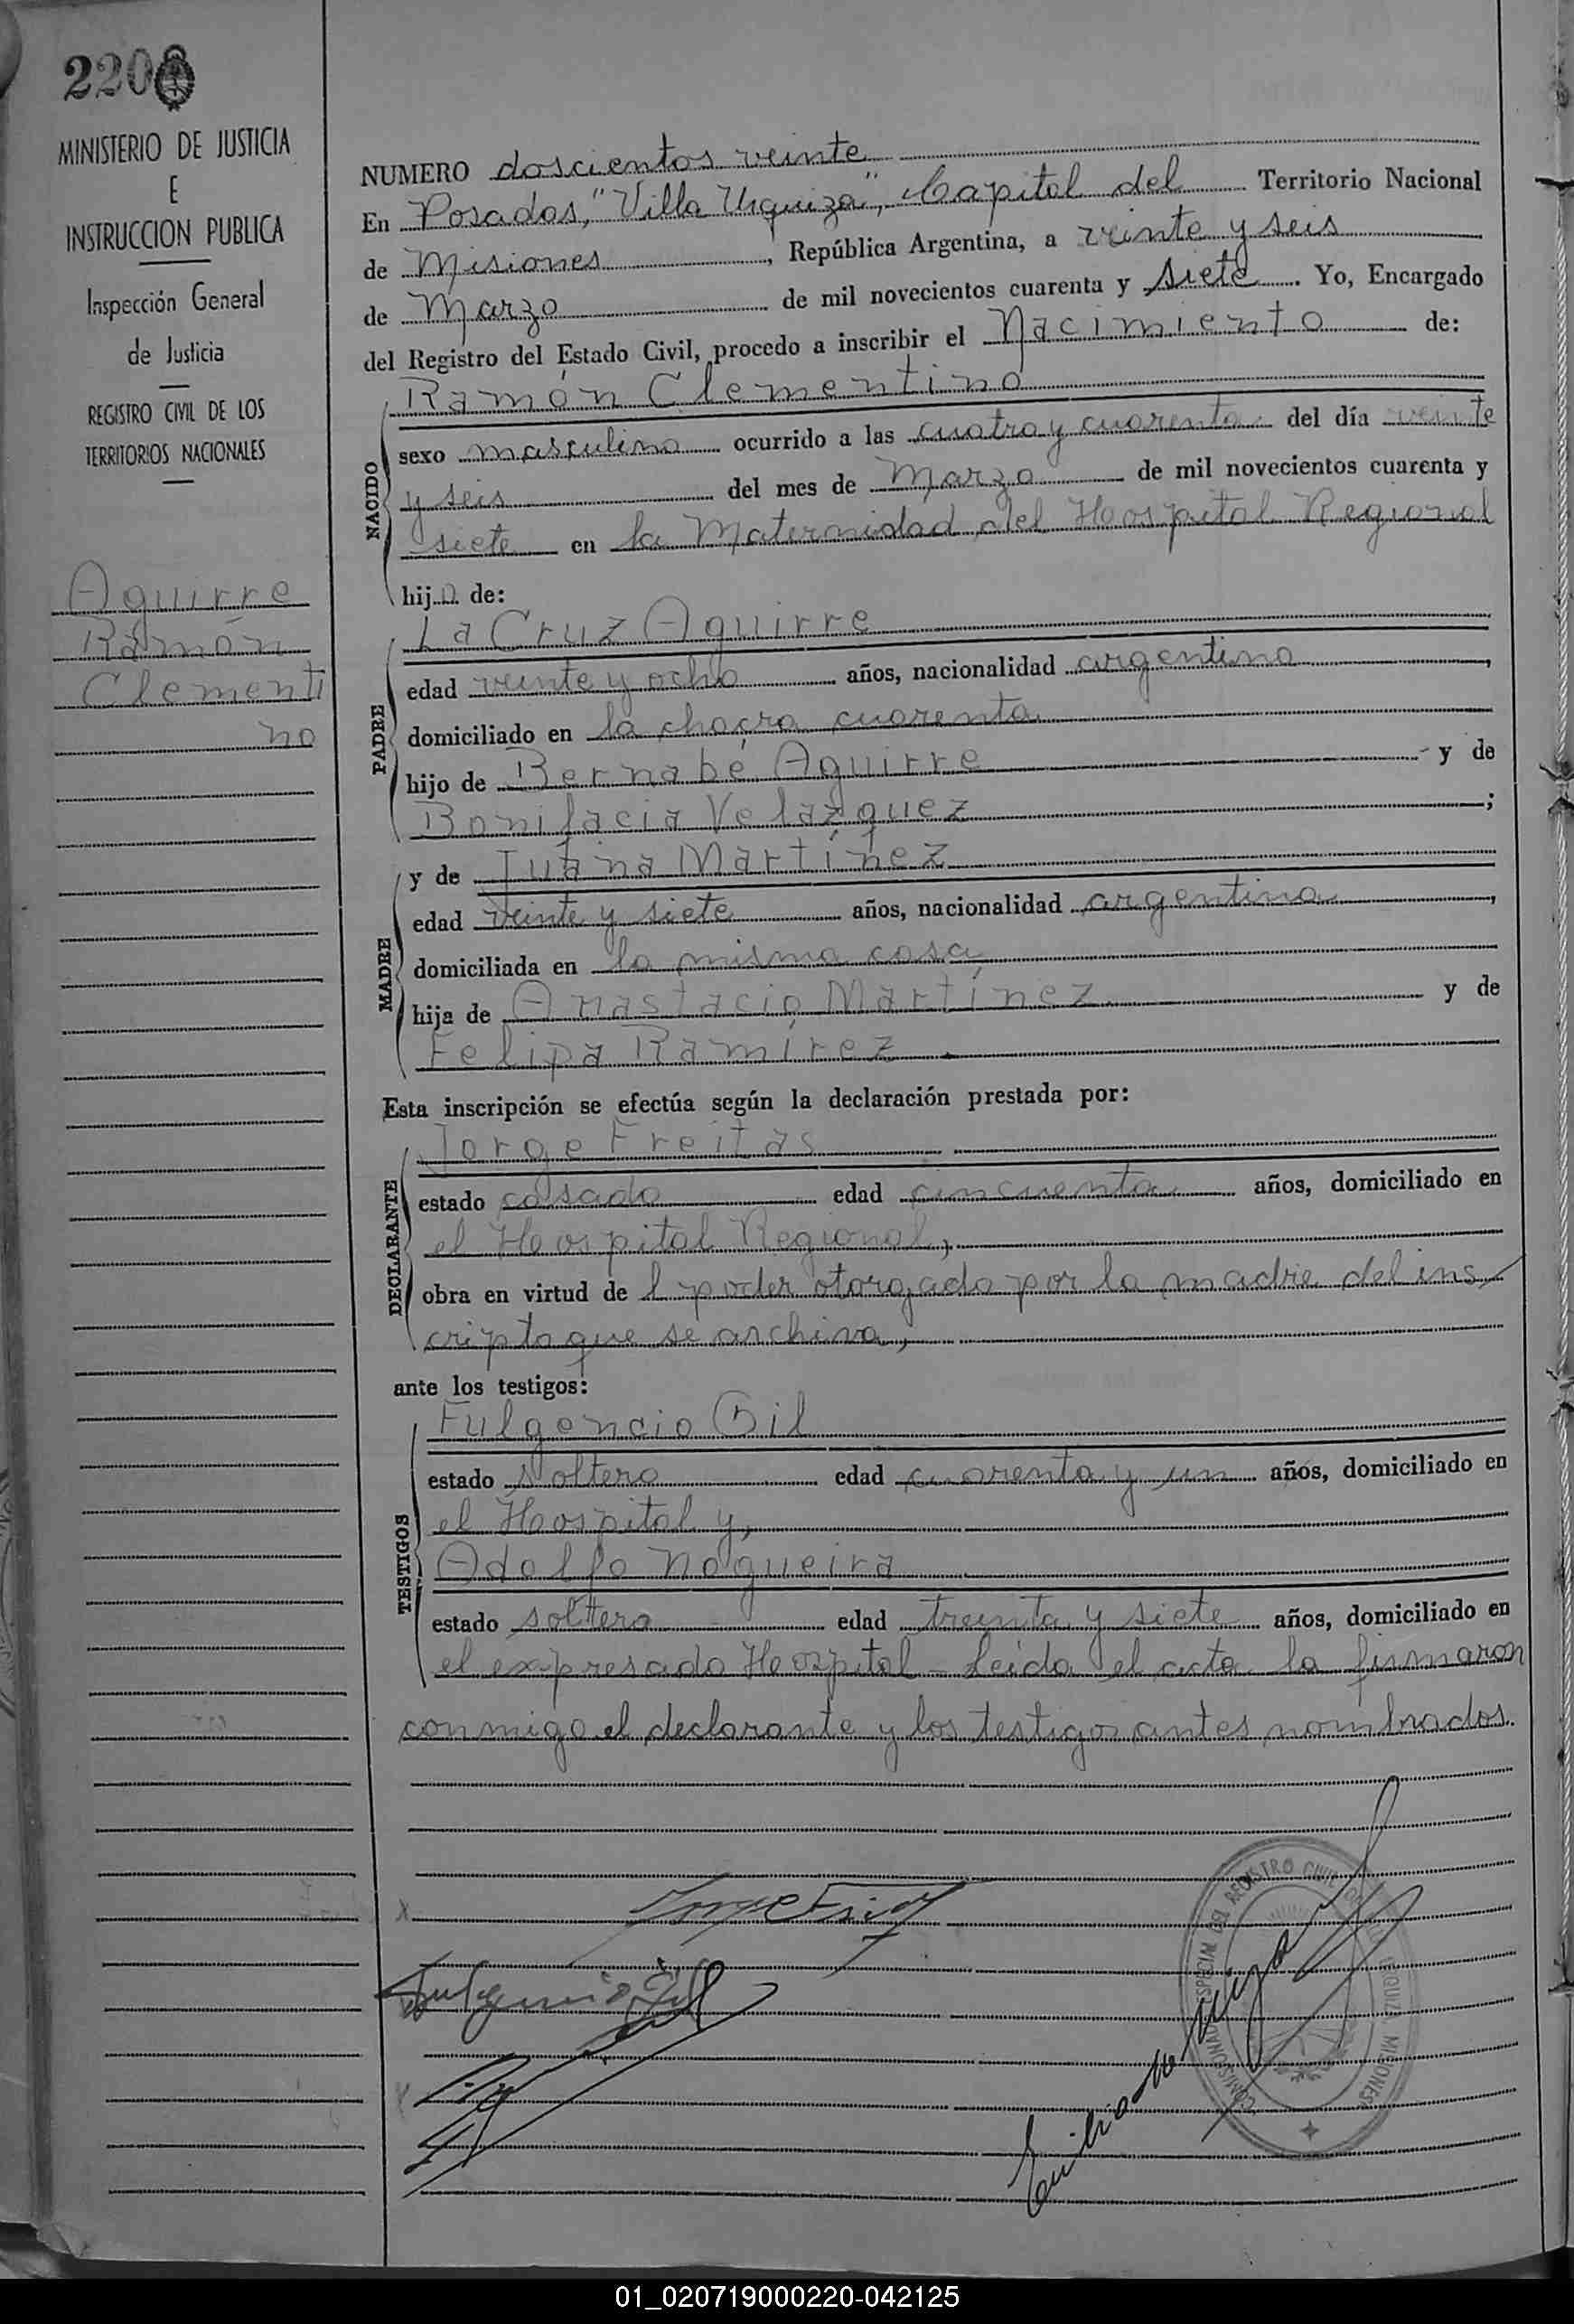 220
MINISTERIO DE JUSTICIA
E
INSTRUCCION PUBLICA
Inspección General
de Justicia
REGISTRO CIVIL DE LOS
TERRITORIOS NACIONALES
Aguirre
Ramón
Clementi
no
NUMERO doscientos veinte
En Posadas, "Villa Urquiza", Capital del Territorio Nacional
de Misiones, República Argentina, a veinte y seis
de Marzo de mil novecientos cuarenta y siete. Yo, Encargado
del Registro del Estado Civil, procedo a inscribir el Nacimiento de:
NACIDO
Ramón Clementino
sexo masculino ocurrido a las cuatro y cuarenta del día veinte
y seis del mes de Marzo de mil novecientos cuarenta y
siete en la Maternidad del Hospital Regional
hijo de:
PADRE
La Cruz Aguirre
edad veinte y ocho años, nacionalidad argentina,
domiciliado en la chacra cuarenta
hijo de Bernabé Aguirre y de
Bonifacia Velazquez;
MADRE
y de Juana Martínez
edad veinte y siete años, nacionalidad argentina,
domiciliada en la misma casa
hija de Anastacio Martínez y de
Felipa Ramírez
Esta inscripción se efectúa según la declaración prestada por:
DECLARANTE
Jorge Freitas
estado casado edad cincuenta años, domiciliado en
el Hospital Regional,
obra en virtud del poder otorgado por la madre del ins
cripto que se archiva,
ante los testigos:
TESTIGOS
Fulgencio Gil
estado soltero edad cuarenta y un años, domiciliado en
el Hospital y,
Adolfo Nogueira
estado soltero edad treinta y siete años, domiciliado en
el expresado Hospital - Leída el acta la firmaron
conmigo el declarante y los testigos antes nombrados.
Fulgencio Gil
REGISTRO CIVIL
URQUIZA MISIONES
01_020719000220-042125